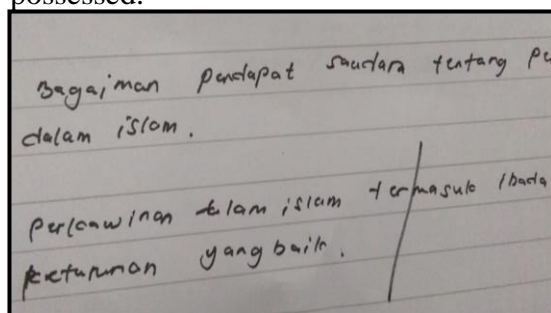 possessed.
Bagaiman pendapat saudara tentang
dalam islam.
perkawinan dalam islam termasuk Ibada
keturunan yang baik.